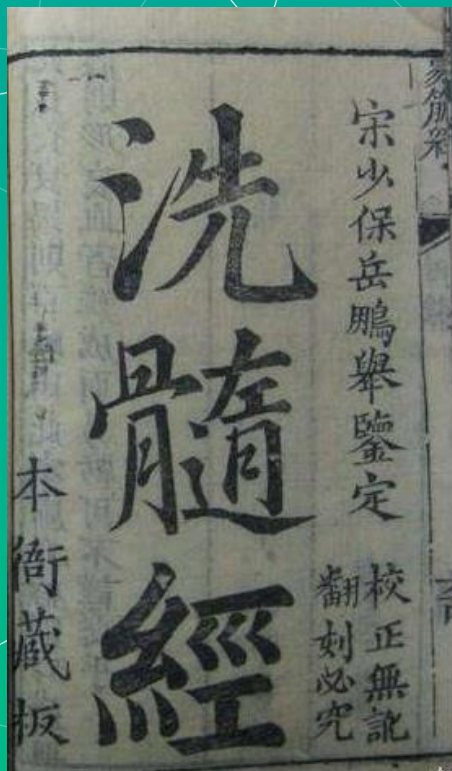 易筋經
宋少保岳鵬舉鑒定
校正無訛
翻刻必究
洗髓經
本衙藏板